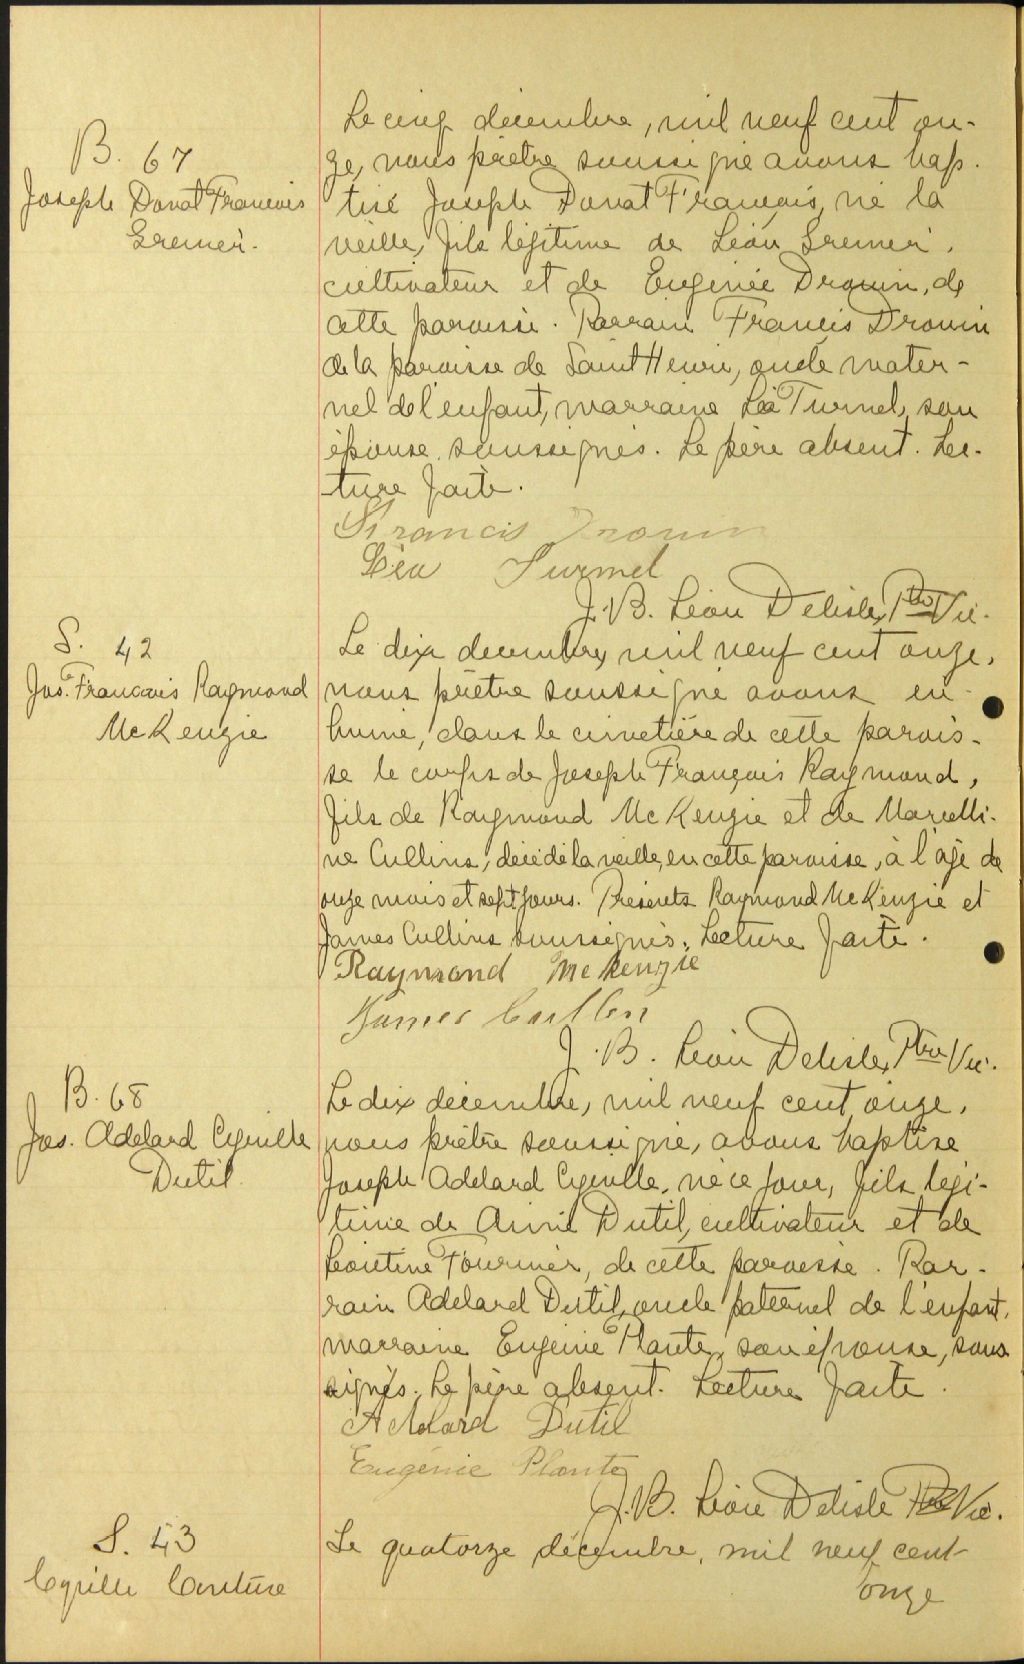 B. 67
Joseph Donat Francois
Grenier.
Le cinq décembre, mil neuf cent on-
ze, nous prêtre soussigné avons bap-
tisé Joseph Donat François, né la
veille, fils légitime de Léon Grenier,
cultivateur et de Eugénie Drouin, de
cette paroisse. Parrain Francis Drouin
de la paroisse de Saint Henri, oncle mater-
nel de l'enfant, marraine Léa Turmel, son
épouse soussignés. Le père absent. Lec-
ture faite.
Francis Drouin
Léa Turmel
J. B. Léon Delisle, Ptre Vic.
S. 42
Jos. Francois Raymond
McKenzie
Le dix decembre, mil neuf cent onze,
nous prêtre soussigné avons in-
humé, dans le cimetière de cette parois-
se le corps de Joseph François Raymond,
fils de Raymond McKenzie et de Marcelli-
ne Cullins, décédé la veille, en cette paroisse, à l'âge de
onze mois et sept jours. Présents Raymond McKenzie et
James Cullins soussignés. Lecture faite.
Raymond McKenzie
James Cullen
J. B. Léon Delisle, Ptre Vic.
B. 68
Jos. Adelard Cyrille
Dutil
Le dix décembre, mil neuf cent onze,
nous prêtre soussigné, avons baptisé
Joseph Adelard Cyrille, né ce jour, fils légi-
time de Aimé Dutil, cultivateur et de
Léontine Fournier, de cette paroisse. Par-
rain Adelard Dutil, oncle paternel de l'enfant,
marraine Eugénie Plante, son épouse, sous
signés. Le père absent. Lecture faite.
Adelard Dutil
Eugénie Plante
J. B. Léon Delisle Ptre Vic.
S. 43
Cyrille Couture
Le quatorze décembre, mil neuf cent
onze